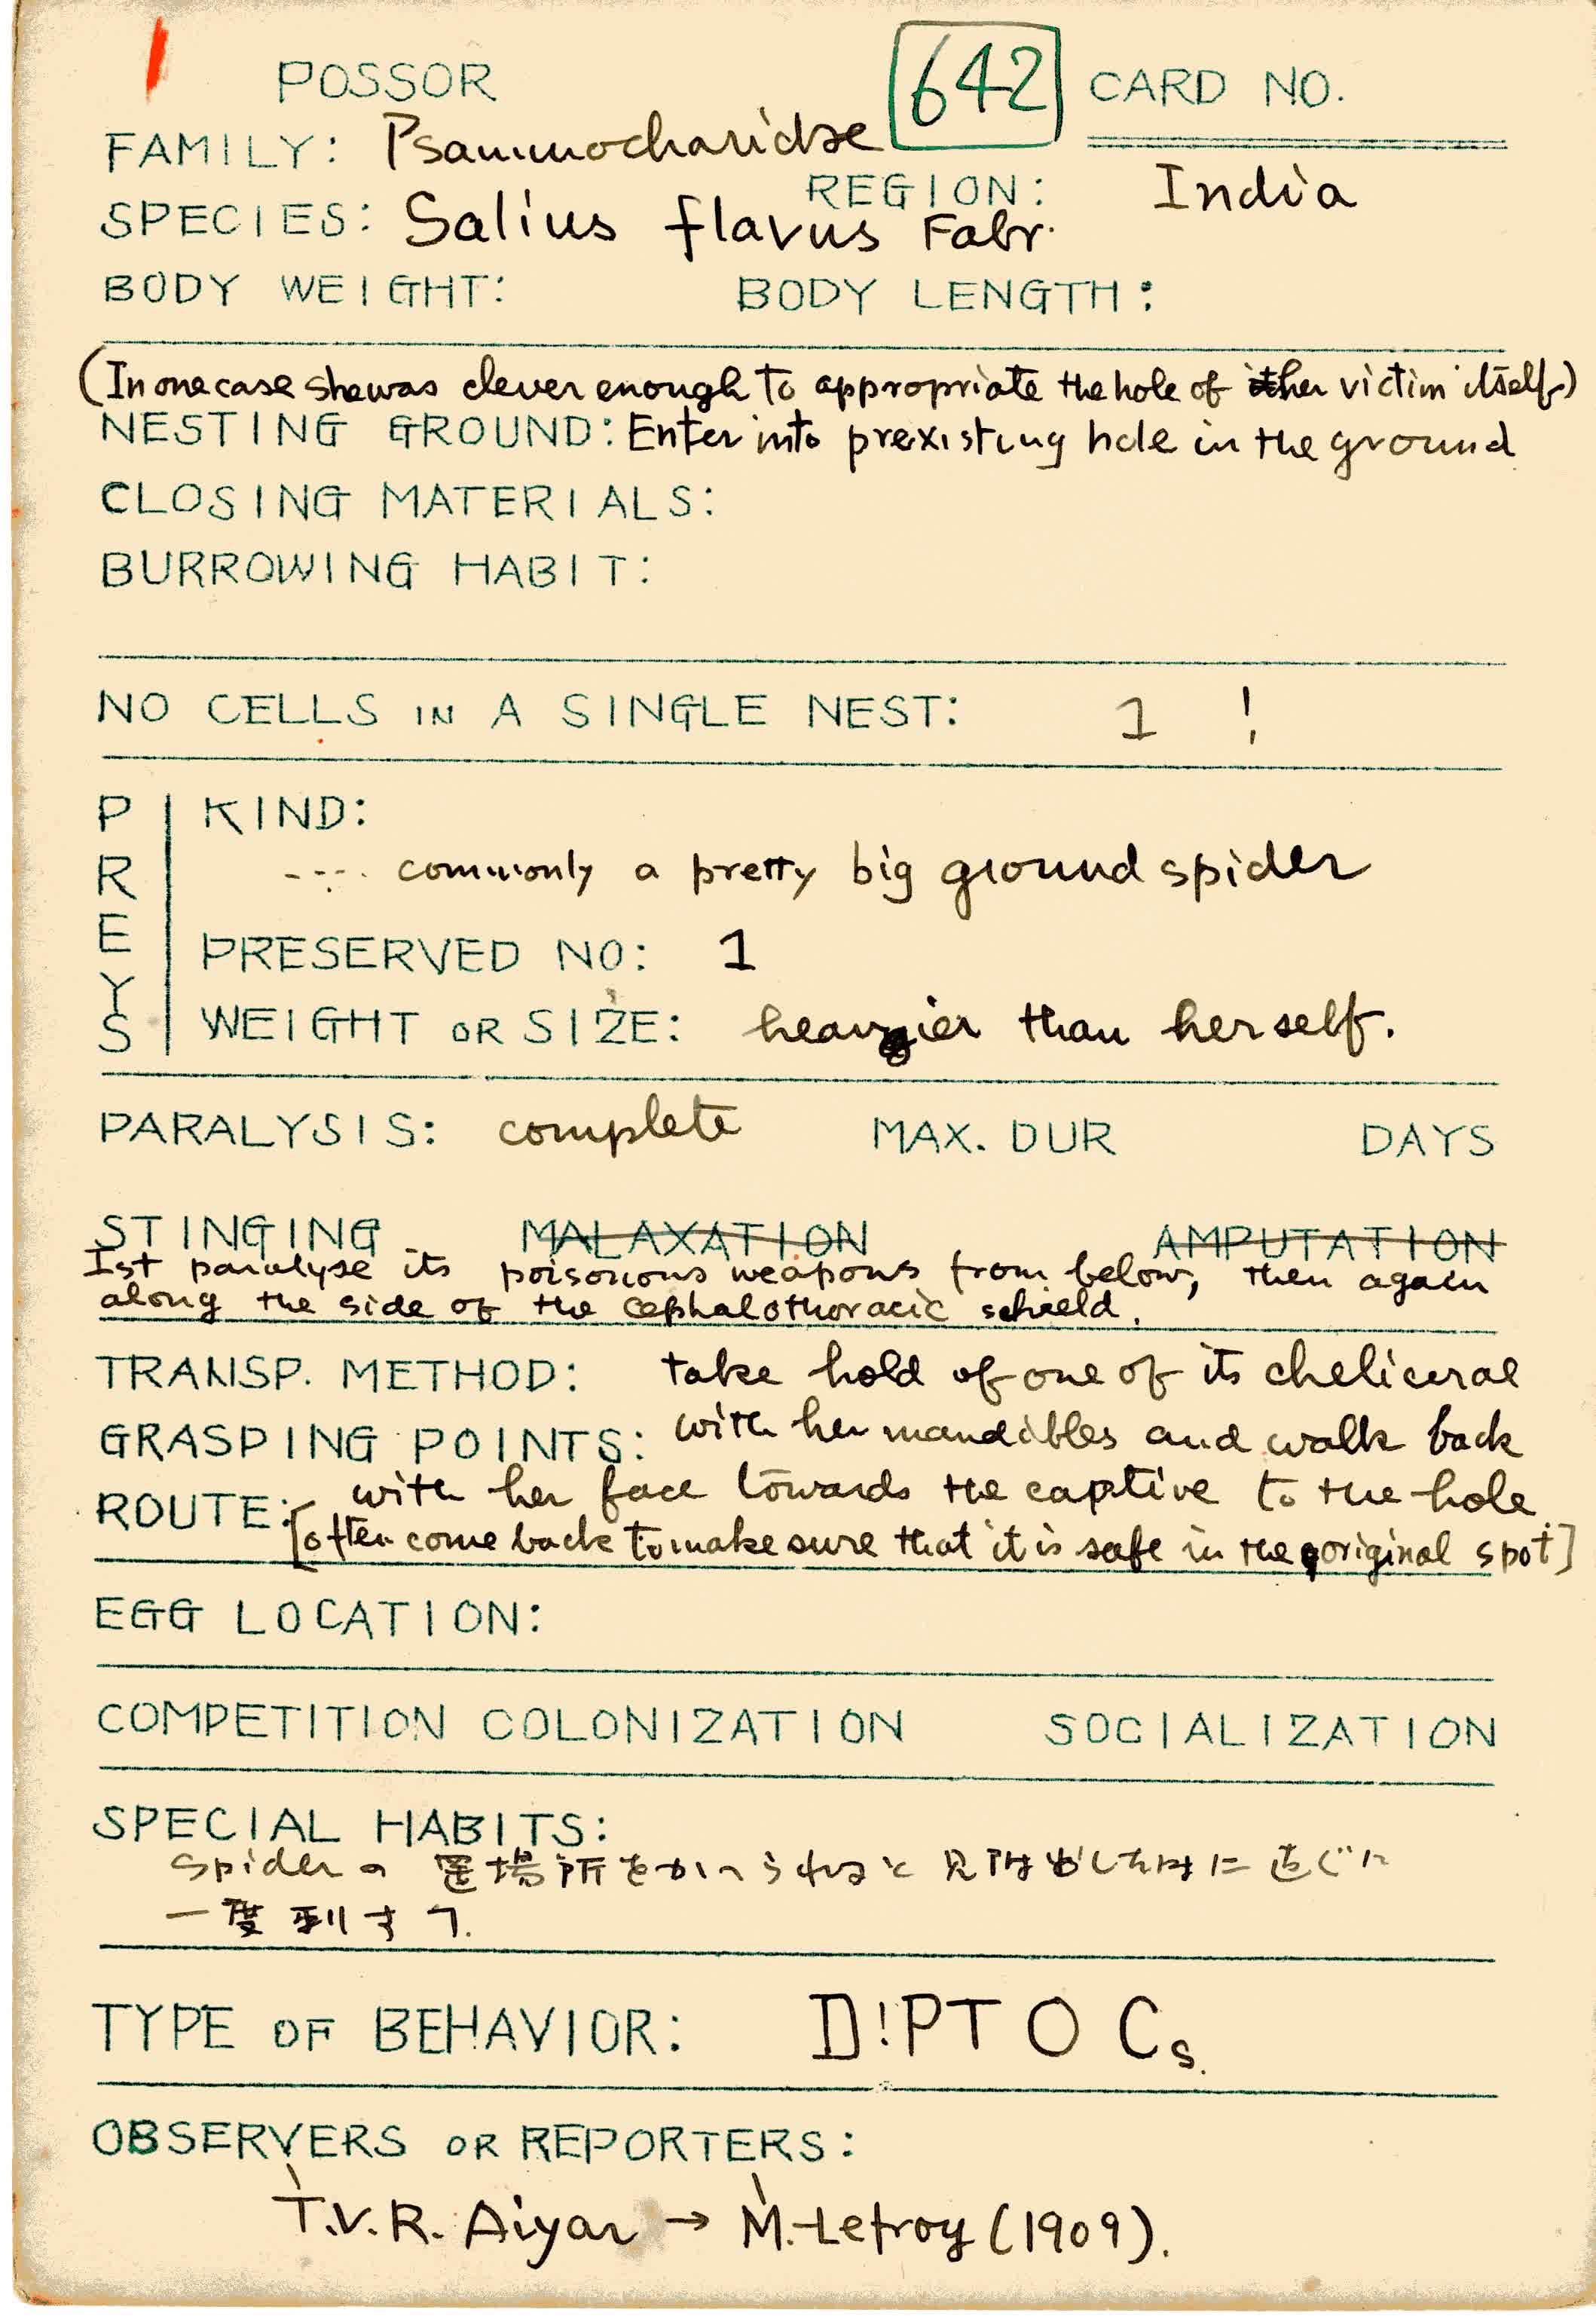 POSSOR 642 CARD NO.
FAMILY: Psammocharidae
REGION: India
SPECIES: Salius flavus Fabr.
BODY WEIGHT: BODY LENGTH:
(In one case she was clever enough to appropriate the hole of her victim itself)
NESTING GROUND: Enter into prexisting hole in the ground
CLOSING MATERIALS:
BURROWING HABIT:
NO CELLS IN A SINGLE NEST: 1 !
PREYS
KIND:
---- commonly a pretty big ground spider
PRESERVED NO: 1
WEIGHT OR SIZE: heavier than herself.
PARALYSIS: complete MAX. DUR DAYS
STINGING MALAXATION AMPUTATION
Ist paralyse its poisonous weapons from below, then again
along the side of the cephalothoracic schield.
TRANSP. METHOD: take hold of one of its cheliceral
GRASPING POINTS: with her mandibles and walk back
ROUTE: with her face towards the captive to the hole.
[often come back to make sure that it is safe in the original spot]
EGG LOCATION:
COMPETITION COLONIZATION SOCIALIZATION
SPECIAL HABITS:
Spiderの置場所をかへられると 見付 に直ぐに
一度刺す
TYPE OF BEHAVIOR: D!PTOCs.
OBSERVERS OR REPORTERS:
T.V.R. Aiyar → M.-Lefroy (1909).